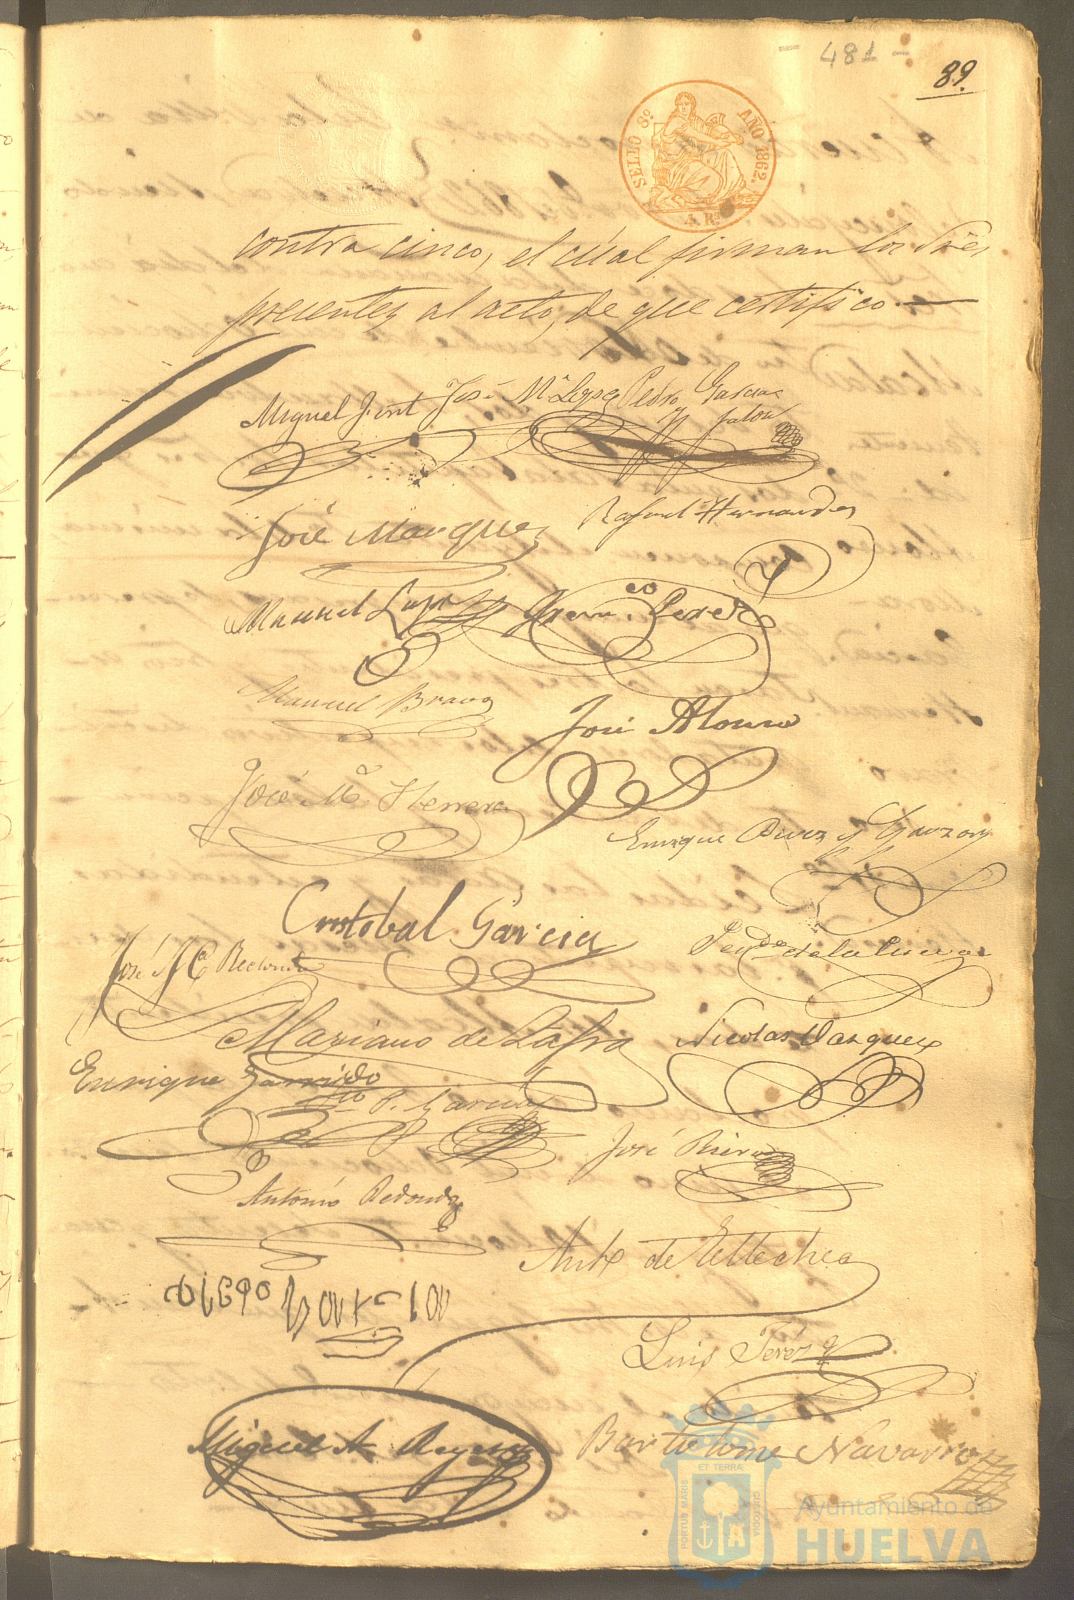 - 481 -
89.
SELLO 8º AÑO 1862.
4 Rs
contra cinco, el cúal firman los Sres
precentes al acto, de que certifico.
Miguel José Mª Lopez Pedro Garcia
y Jalon
José Marquez Rafael Hernandez
Manuel Franco Perez
Manuel Bravo
José Alonso
José Mª Herrera
Enrique Perez y Garzon
Cristobal Garcia
José Mª Redondo
de la Cueva
Mariano de Zafra
Nicolas Vazquez
Enrique Garrido
P. Garcia
José Rivera
Antonio Redondo
Antº de
Diego Garcia
Luis Perez
Miguel A. Reyes
Bartolome Navarro
ET TERRÆ
PORTUS MARIS
CUSTODIA
Ayuntamiento de
HUELVA